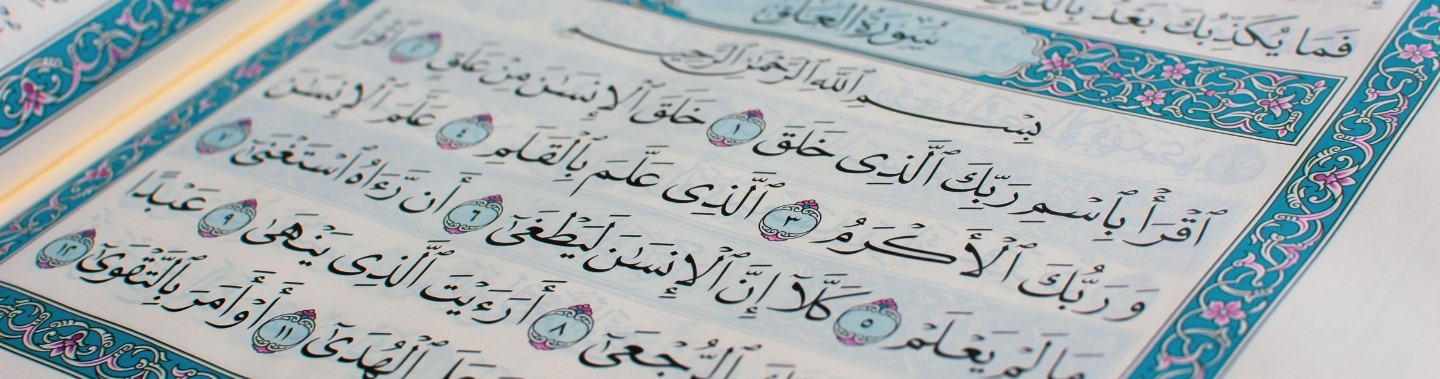 فَمَا يُكَذِّبُكَ بَعْدُ بِٱلدِّينِ
سُورَةُ العَلَق
بِسْمِ ٱللَّهِ ٱلرَّحْمَٰنِ ٱلرَّحِيمِ
ٱقْرَأْ بِٱسْمِ رَبِّكَ ٱلَّذِى خَلَقَ ١ خَلَقَ ٱلْإِنسَٰنَ مِنْ عَلَقٍ ٢ ٱقْرَأْ
وَرَبُّكَ ٱلْأَكْرَمُ ٣ ٱلَّذِى عَلَّمَ بِٱلْقَلَمِ ٤ عَلَّمَ ٱلْإِنسَٰنَ
مَا لَمْ يَعْلَمْ ٥ كَلَّآ إِنَّ ٱلْإِنسَٰنَ لَيَطْغَىٰٓ ٦ أَن رَّءَاهُ ٱسْتَغْنَىٰٓ ٧
ٱلرُّجْعَىٰٓ ٨ أَرَءَيْتَ ٱلَّذِى يَنْهَىٰ ٩ عَبْدًا
ٱلْهُدَىٰٓ ١١ أَوْ أَمَرَ بِٱلتَّقْوَىٰٓ ١٢